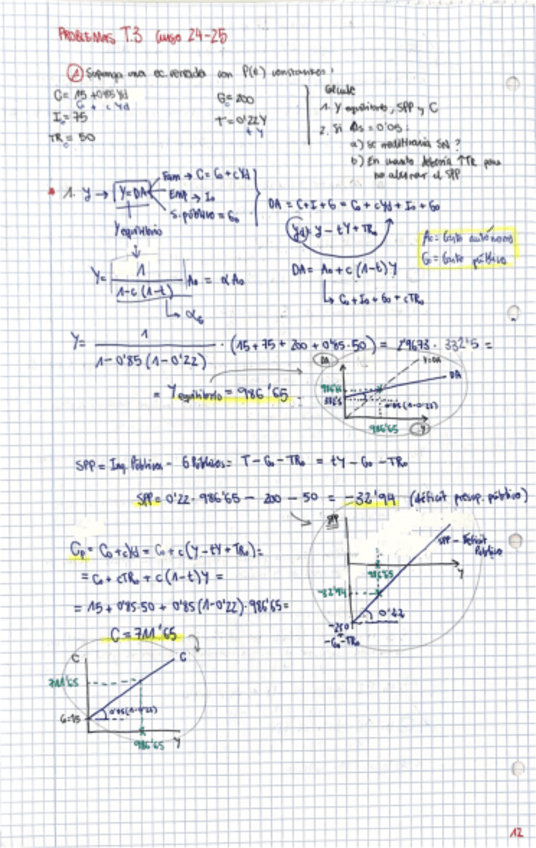 PROBLEMAS T.3 Curso 24-25
① Suponga una ec. cerrada con P(t) constantes:
C = 15 + 0'85 Yd
C₀ + c Yd
I₀ = 75
TR₀ = 50
G₀ = 200
T = 0'22Y
tY
Calcule
1. Y equilibrio, SPP y C
2. Si Δs = 0'05:
a) Se modificaría SN?
b) En cuanto debería ↑TR para
no alterar el SPP
* 1. Y → Y = DA
Fam → C = C₀ + cYd
Emp → I₀
S. público = G₀
Y equilibrio
DA = C + I + G = C₀ + cYd + I₀ + G₀
Yd = Y - tY + TR₀
DA = A₀ + c(1-t)Y
C₀ + I₀ + G₀ + cTR₀
A₀ = Gasto autónomo
G₀ = Gasto público
Y = 1 / 1-c(1-t) A₀ = αA₀
α₆
Y = 1 / 1-0'85(1-0'22) · (15 + 75 + 200 + 0'85·50) = 2'9673 · 332'5 =
= Y equilibrio = 986'65
DA
Y=DA
DA
986'65
332'5
0'85(1-0'22)
986'65
Y
SPP = Ing. Públicos - G Públicos = T - G₀ - TR₀ = tY - G₀ - TR₀
SPP = 0'22 · 986'65 - 200 - 50 = -32'94 (déficit presup. público)
SPP
SPP - Déficit
Público
986'65
Y
-32'94
0'22
-250
-G₀-TR₀
Cp = C₀ + cYd = C₀ + c(Y - tY + TR₀) =
= C₀ + cTR₀ + c(1-t)Y =
= 15 + 0'85·50 + 0'85(1-0'22)·986'65 =
C = 711'65
C
C
711'65
0'85(1-0'22)
C₀=15
986'65
Y
12